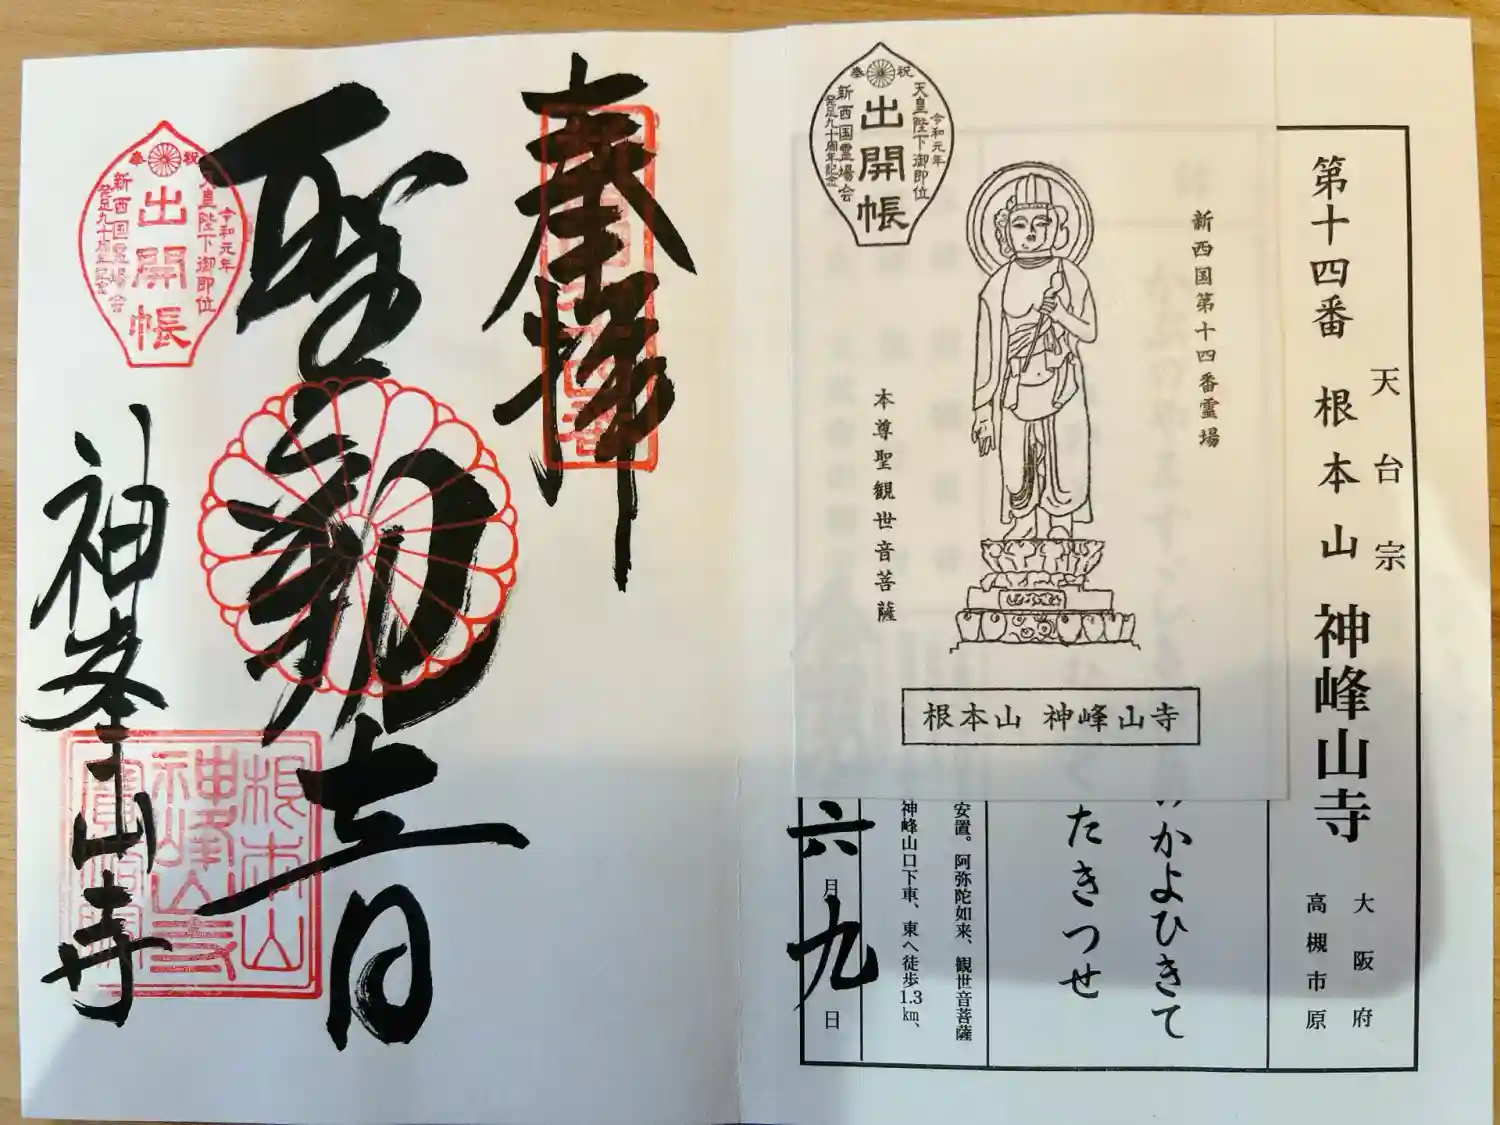 天台宗
第十四番 根本山 神峰山寺
大阪府
高槻市原
かよひきて
たきつせ
安置。阿弥陀如来、観世音菩薩
神峰山口下車、東へ徒歩1.3㎞、
六月九日
奉祝
令和元年
天皇陛下御即位
出開帳
新西国霊場会
発足九十周年記念
新西国第十四番霊場
本尊聖観世音菩薩
根本山 神峰山寺
奉拝
聖観音
神峯山寺
奉祝
令和元年
天皇陛下御即位
出開帳
新西国霊場会
発足九十周年記念
根本山
神峰山寺